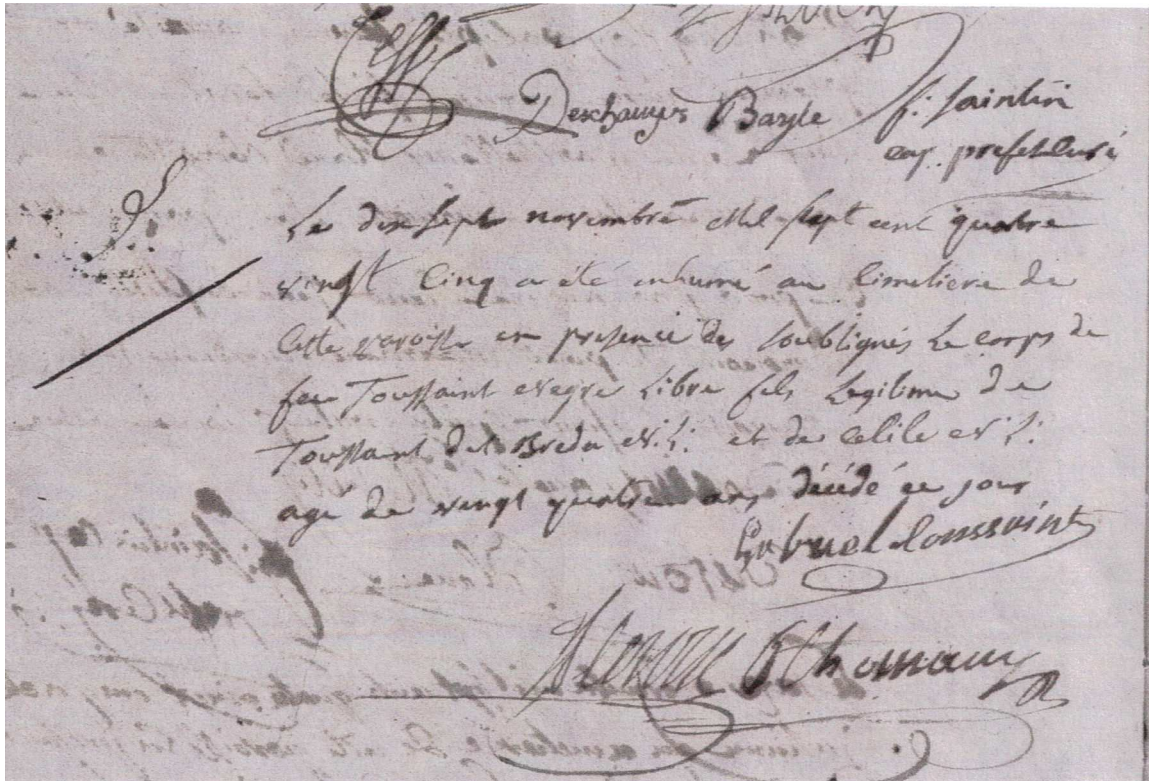 Deschamps Bazyle f: saintin
cap. prefet Curé
Le dix sept novembre Mil sept cent quatre
vingt Cinq a été inhumé au Cimetiere de
Cette paroisse en presence des soubsignés Le corps de
feu Toussaint Negre Libre fils Legitime de
Toussaint dit Breda N: L: et de Cecile N: L:
agé de vingt quatre ans décédé ce jour
Gabriel Toussaint
Thomany